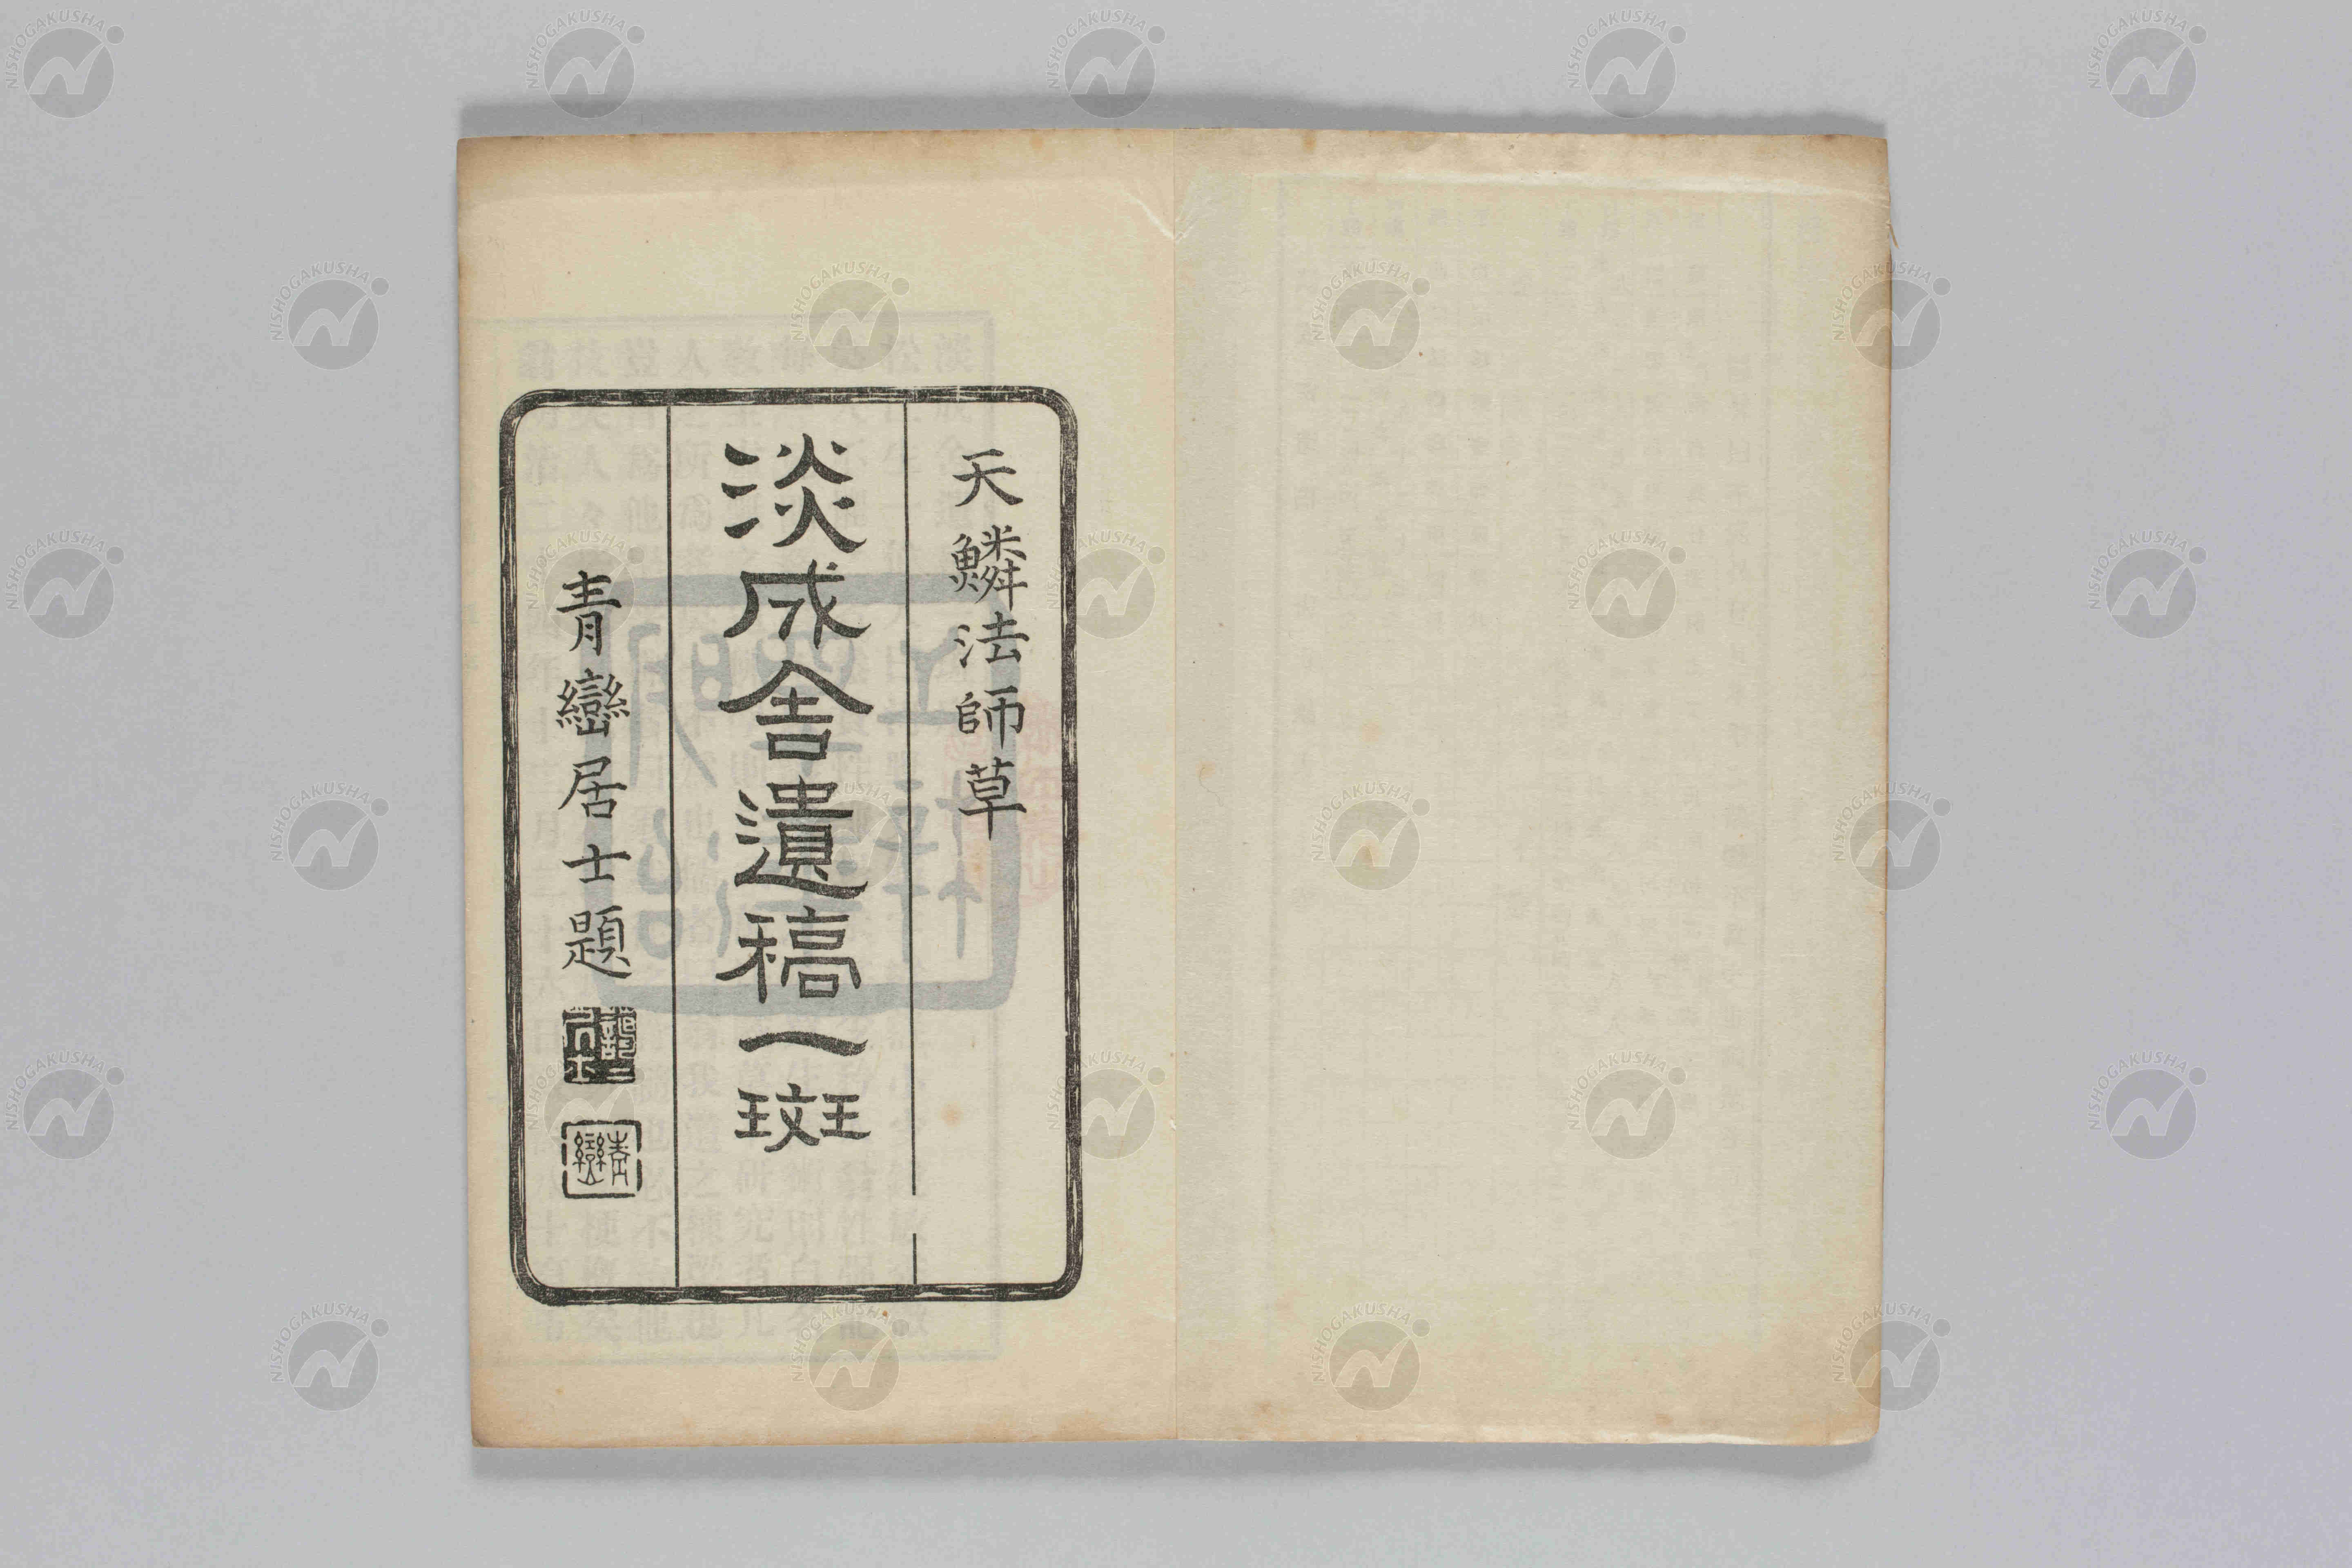 天鱗法師草
淡成舎遺稿一斑
青巒居士題
青巒
NISHOGAKUSHA